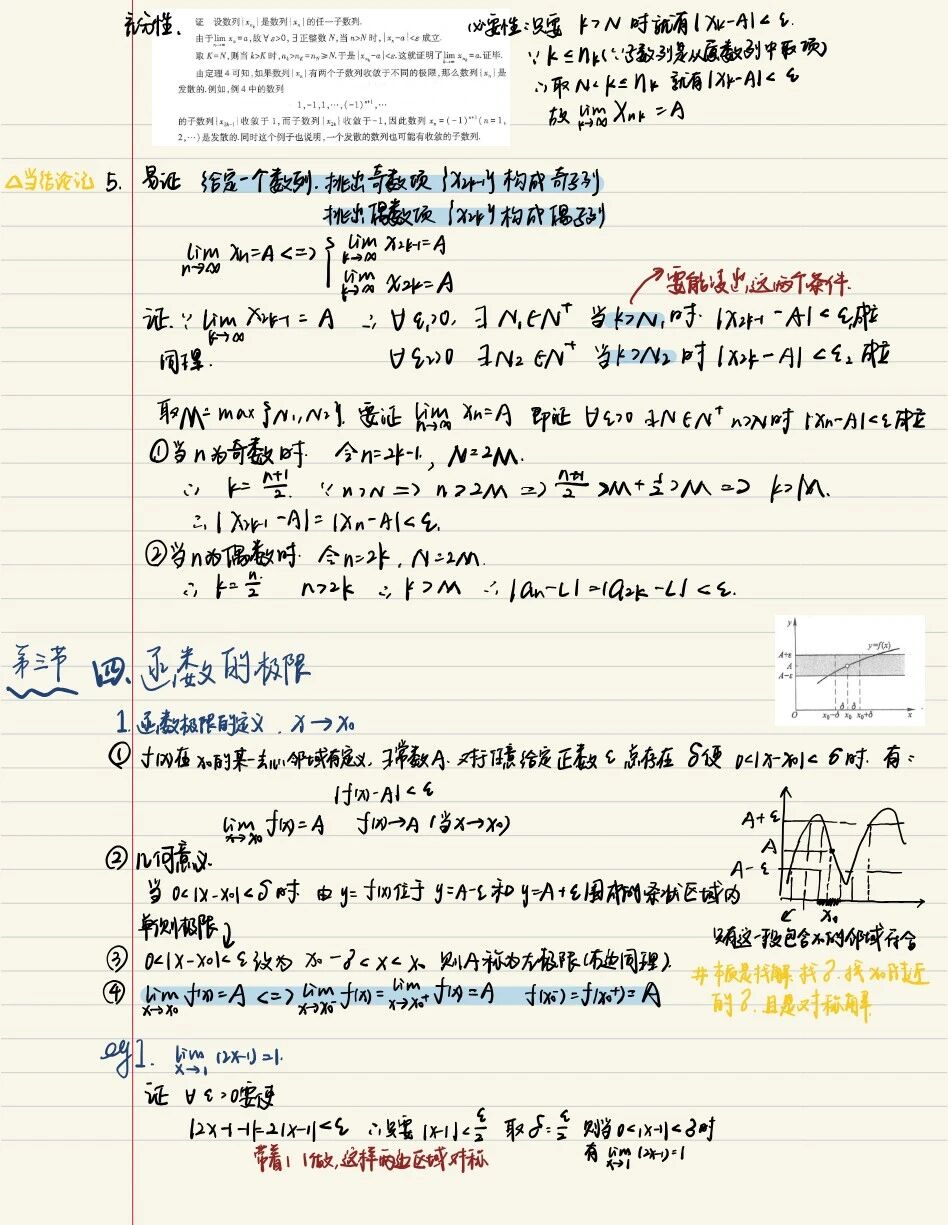 充分性.
证 设数列{x_{n_k}}是数列{x_n}的任一子数列.
由于lim_{n→∞} x_n=a,故∀ε>0,∃正整数N,当n>N时,|x_n-a|<ε成立.
取K=N,则当k>K时,n_k>n_K=n_N≥N.于是|x_{n_k}-a|<ε.这就证明了lim_{k→∞} x_{n_k}=a.证毕.
由定理4可知,如果数列{x_n}有两个子数列收敛于不同的极限,那么数列{x_n}是
发散的.例如,例4中的数列
1,-1,1,…,(-1)^{n+1},…
的子数列{x_{2k-1}}收敛于1,而子数列{x_{2k}}收敛于-1,因此数列x_n=(-1)^{n+1}(n=1,
2,…)是发散的.同时这个例子也说明,一个发散的数列也可能有收敛的子数列.
必要性:只要 k>N 时就有|x_k-A|<ε.
∵ k≤n_k(∵子数列是从原数列中取项)
∴取 N<k≤n_k 就有|x_k-A|<ε
故 lim_{k→∞} x_{nk}=A
△当结论记 5. 易证 给定一个数列.挑出奇数项{x_{2k-1}}构成奇子列
挑出偶数项{x_{2k}}构成偶子列
lim_{n→∞} x_n=A<=> { lim_{k→∞} x_{2k-1}=A
lim_{k→∞} x_{2k}=A
要能凑出这两个条件.
证.∵ lim_{k→∞} x_{2k-1}=A ∴ ∀ε₁>0, ∃ N₁∈N⁺ 当k>N₁时. |x_{2k-1}-A|<ε₁成立
同理. ∀ε₂>0 ∃N₂∈N⁺ 当k>N₂时 |x_{2k}-A|<ε₂ 成立
取M=max{N₁,N₂}. 要证 lim_{n→∞} x_n=A 即证 ∀ε>0 ∃N∈N⁺ n>N时 |x_n-A|<ε成立
①当n为奇数时. 令n=2k-1, N=2M.
∴ k=(n+1)/2. ∵ n>N => n>2M => (n+1)/2>M+1/2>M => k>M.
∴|x_{2k-1}-A|=|x_n-A|<ε.
②当n为偶数时. 令n=2k, N=2M.
∴ k=n/2 n>2k ∴ k>M ∴|a_n-L|=|a_{2k}-L|<ε.
第三节 四、函数的极限
y
A+ε
A
A-ε
y=f(x)
δ δ
O x₀-δ x₀ x₀+δ x
1.函数极限的定义. x→x₀
① f(x)在x₀的某一去心邻域有定义,∃常数A.对于任意给定正数ε总存在δ使 0<|x-x₀|<δ时. 有:
|f(x)-A|<ε
lim_{x→x₀} f(x)=A f(x)→A(当x→x₀)
A+ε
A
A-ε
x₀
② 几何意义.
当0<|x-x₀|<δ时 由y=f(x)位于y=A-ε和y=A+ε围成的条状区域内
只有这一段包含x₀的邻域符合
单侧极限
③ 0<|x-x₀|<ε改为 x₀-δ<x<x₀ 则A称为左极限(右边同理).
④ lim_{x→x₀} f(x)=A <=> lim_{x→x₀⁻} f(x)=lim_{x→x₀⁺} f(x)=A f(x₀⁻)=f(x₀⁺)=A
#本质是找解.找δ.找x₀附近
的δ.且是对称解
eg1. lim_{x→1} (2x-1)=1.
证 ∀ε>0要使
|2x-1-1|=2|x-1|<ε ∴只要|x-1|<ε/2 取δ=ε/2 则当0<|x-1|<δ时
有 lim_{x→1} (2x-1)=1
带着| |做,这样两边区域对称